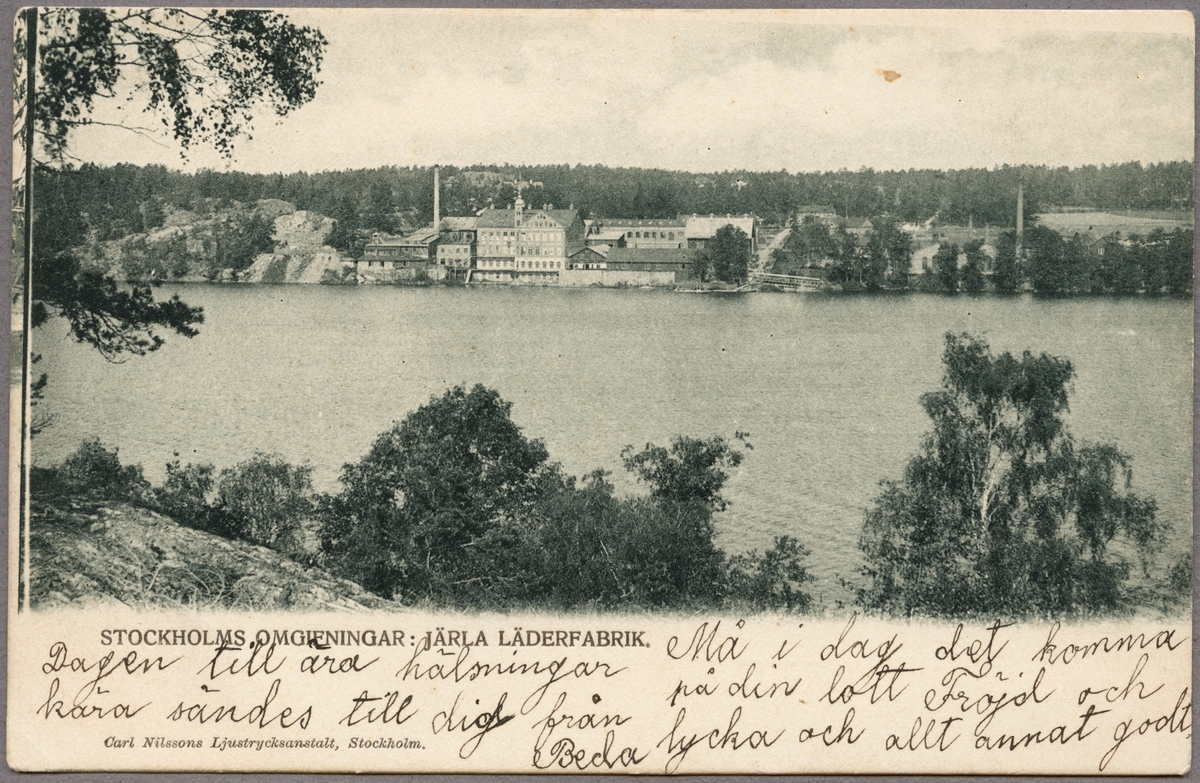 STOCKHOLMS OMGIFNINGAR: JÄRLA LÄDERFABRIK.
Dagen till ära hälsningar
kära sändes till dig från
Beda
Må i dag det komma
på din lott Fröjd och
lycka och allt annat godt,
Carl Nilssons Ljustrycksanstalt, Stockholm.